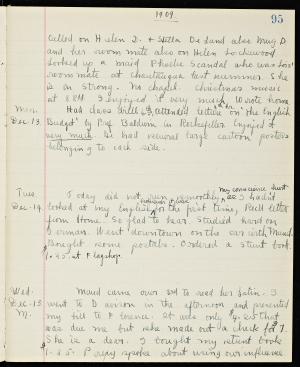 1909
95
called on Helen D. & Stella De Land also Mug D
and her room mate also on Helen Lockwood
Looked up a maid Phoebe Scandal who was Lois'
room mate at Chautauqua last summer. She
is on strong. No chapel. Christmas music
at 8 P.M. I enjoyed it very much. Wrote home.
Mon.
Dec. 13.
Had class drill & attended lecture on "The English
Budget" by Prof. Baldwin in Rockefeller. Enjoyed it
very much. He had several large cartoon posters
belonging to each side.
Tues.
Dec. 14.
my conscience hurt
Today did not run smoothly as I hadn't
looked at my English for the first time, Rec'd letter
from Home. So glad to hear. Studied hard on
German. Went downtown on the car with Maud.
Bought some postals. Ordered a stunt book
$1.45 at Flagshop.
Wed.
Dec. 15
M.
Maud came over 8th to read her Latin. I
went to Davison in the afternoon and presented
my bill to Florence. It was only $ that
was due me but she made out a check for $7.
She is a dear. I bought my stunt book
1.45. Prexy spoke about using our influence.